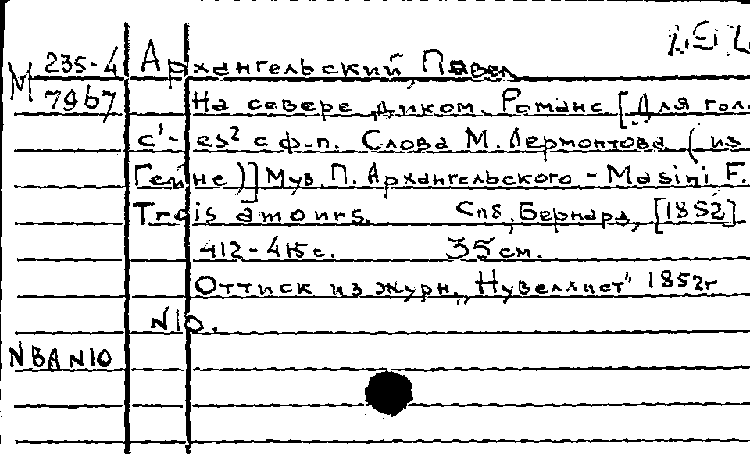 235-4 Архангельский, Павел
М 7967 На севере диком. Романс [Для гол.
c¹-es² с ф-п. Слова М. Лермонтова (из
Гейне)] Муз. П. Архангельского - Masini F.
Trois amours. Спб, Бернард, [1852]
412-415 с. 35 см.
Оттиск из журн. „Нувеллист" 1852г
N10.
NBA N10